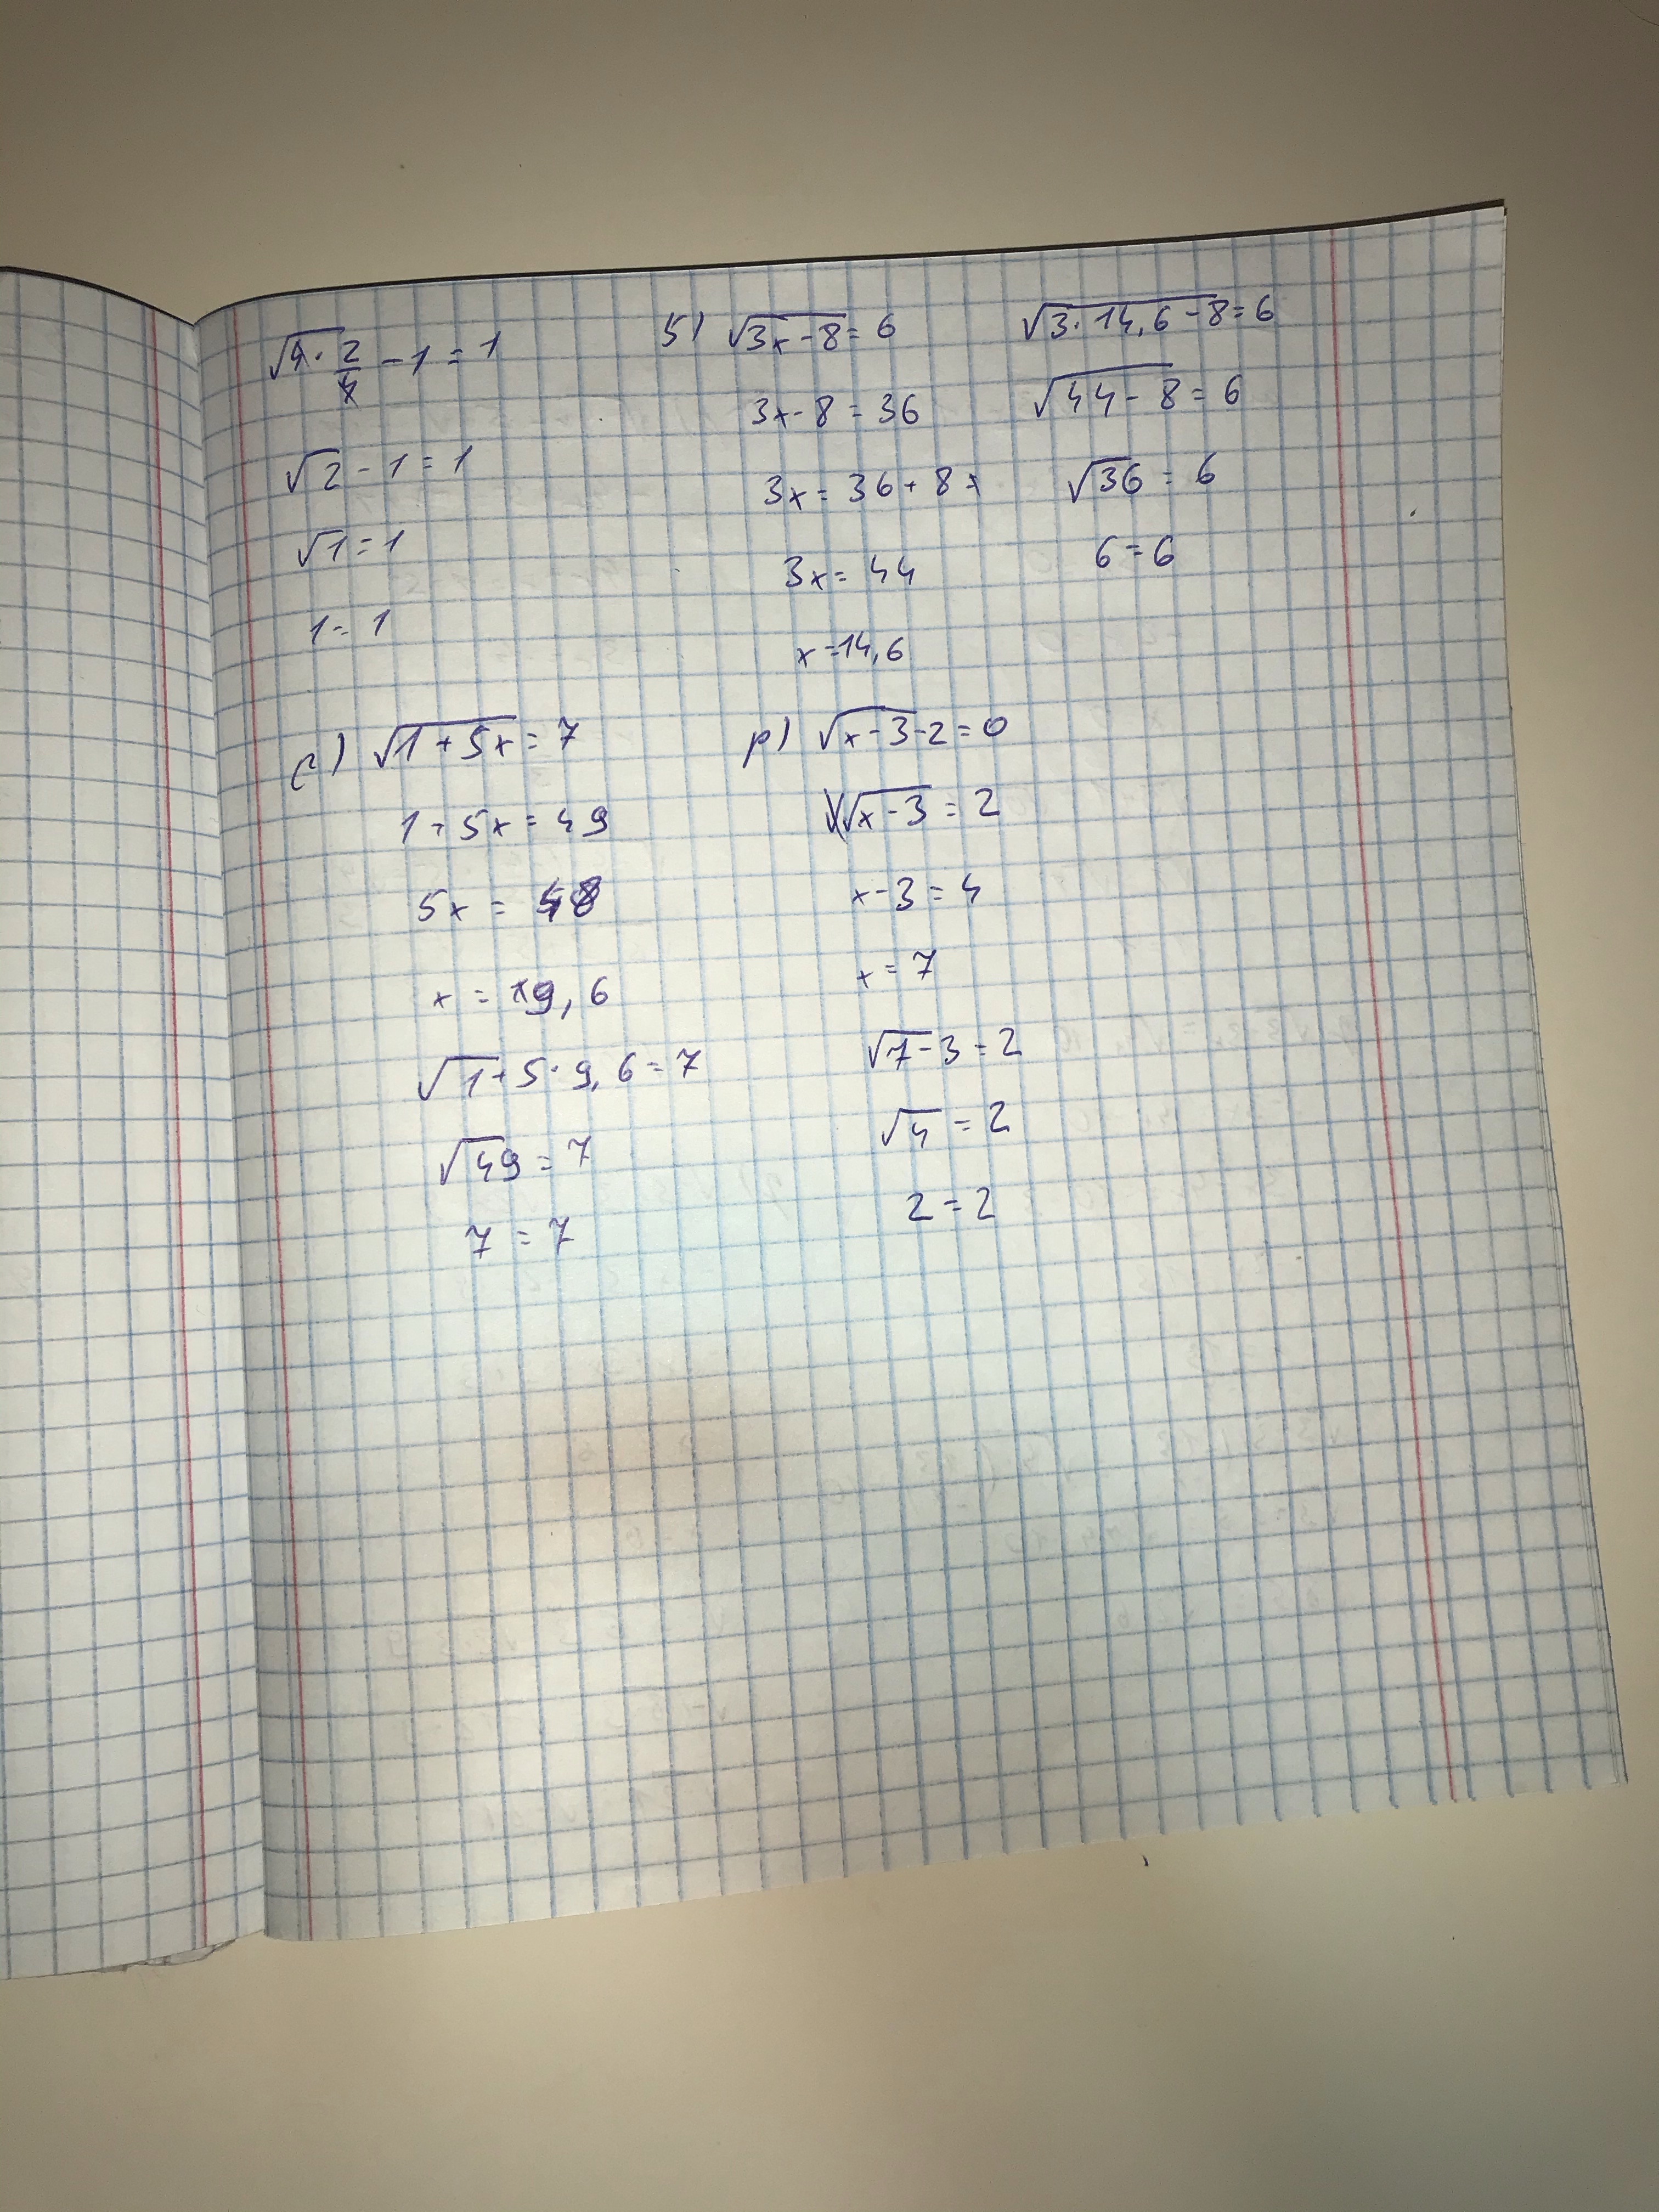 √4·2/4 - 1 = 1
√2 - 1 = 1
√1 = 1
1 = 1
5) √3x - 8 = 6
3x - 8 = 36
3x = 36 + 8 =
3x = 44
x = 14,6
√3·14,6 - 8 = 6
√44 - 8 = 6
√36 = 6
6 = 6
c) √1 + 5x = 7
1 + 5x = 49
5x = 48
x = 9,6
√1 + 5·9,6 = 7
√49 = 7
7 = 7
p) √x - 3 - 2 = 0
√x - 3 = 2
x - 3 = 4
x = 7
√7 - 3 = 2
√4 = 2
2 = 2